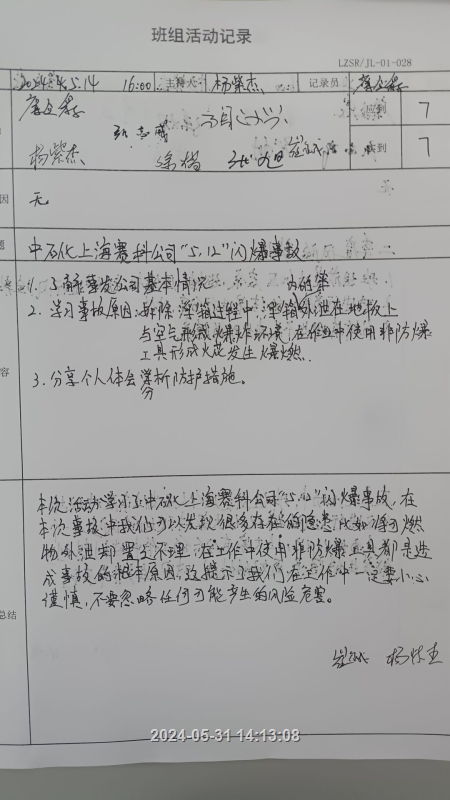 班组活动记录
LZSR/JL-01-028
2024.5.14 16:00 主持人 杨紫杰 记录员
应到 7
杨紫杰 徐楷 实到 7
因 无
题 中石化上海赛科公司"5.12"闪爆事故
1. 了解事发公司基本情况
2. 学习事故原因:拆除浮箱过程中,浮箱内的苯外泄在地板上
与空气形成爆炸环境,在作业中使用非防爆
工具形成火花发生爆燃.
容
3. 分享个人体会,分析防护措施。
本次活动学习了中石化上海赛科公司"5.12"闪爆事故,在
本次事故中我们可以发现很多存在的隐患,比如浮可燃
物外泄却置之不理,在工作中使用非防爆工具都是造
成事故的根本原因,这提示了我们在工作中一定要小心
谨慎,不要忽略任何可能产生的风险危害。
总结
2024-05-31 14:13:08